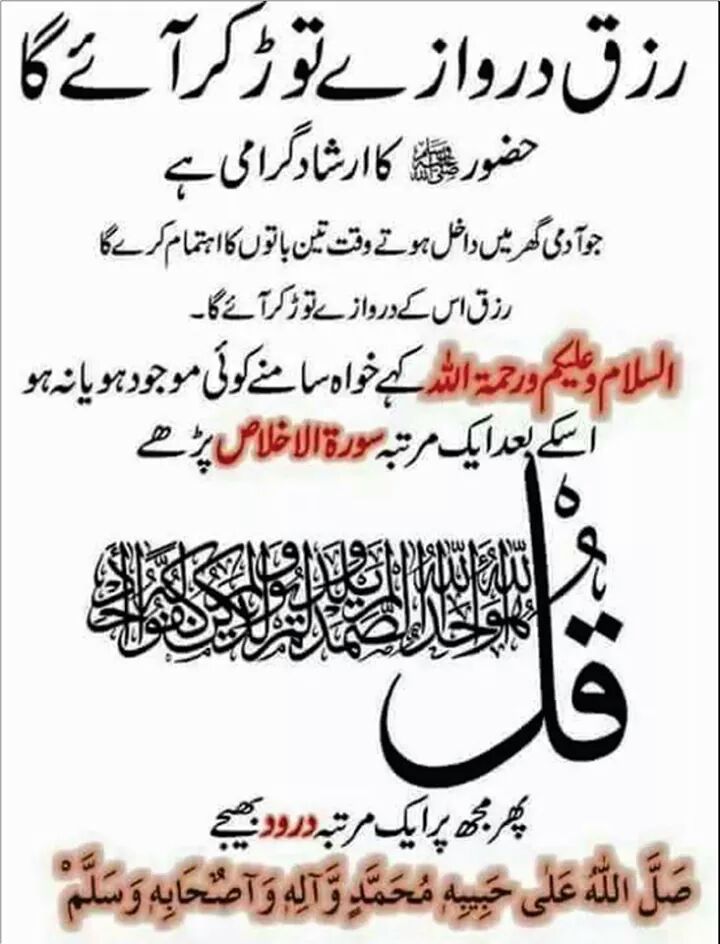 رزق دروازے توڑ کر آئے گا
حضور ﷺ کا ارشاد گرامی ہے
جو آدمی گھر میں داخل ہوتے وقت تین باتوں کا اہتمام کرے گا
رزق اس کے دروازے توڑ کر آئے گا۔
السلام وعلیکم ورحمۃ اللہ کہے خواہ سامنے کوئی موجود ہو یا نہ ہو
اسکے بعد ایک مرتبہ سورۃ الاخلاص پڑھے
قُلْ هُوَ اللّٰهُ أَحَدٌ اللّٰهُ الصَّمَدُ لَمْ يَلِدْ وَلَمْ يُولَدْ وَلَمْ يَكُنْ لَهُ كُفُوًا أَحَدٌ
پھر مجھ پر ایک مرتبہ درود بھیجے
صَلَّ اللّٰهُ عَلٰی حَبِیْبِهٖ مُحَمَّدٍ وَّآلِهٖ وَآصْحَابِهٖ وَسَلَّمْ